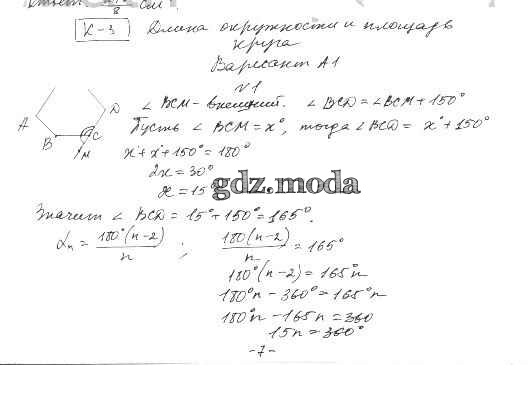 К-3 Длина окружности и площадь
круга
Вариант А1
№1
∠ BCM - внешний. ∠ BCD = ∠BCM + 150°
Пусть ∠ BCM = x°, тогда ∠ BCD = x° + 150°
A
B
C
D
M
x° + x° + 150° = 180°
2x = 30°
x = 15
gdz.moda
Значит ∠ BCD = 15° + 150° = 165°.
αn = 180°(n-2)/n ; 180°(n-2)/n = 165°
180°(n-2) = 165°n
180°n - 360° = 165°n
180°n - 165n = 360
15n = 360°
-7-